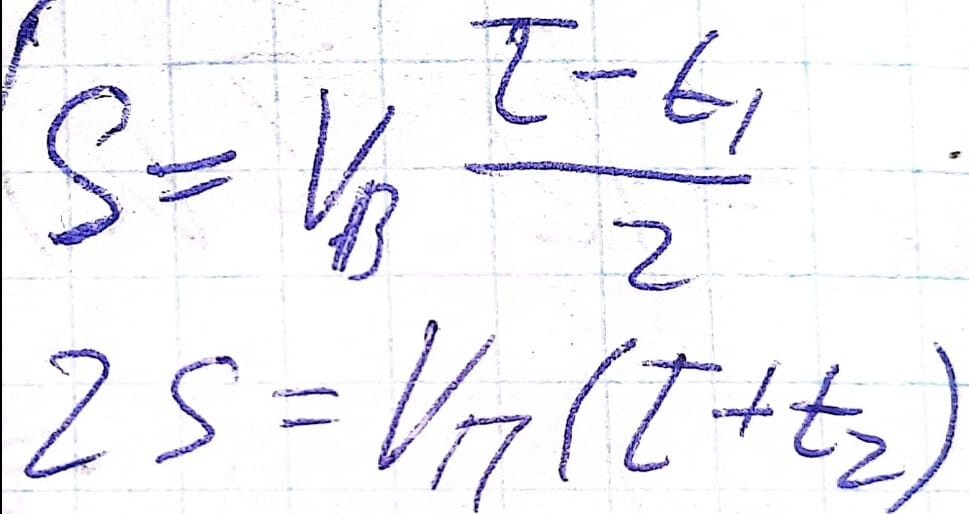 S = V_В (τ - t₁)/2
2S = V_П (τ + t₂)